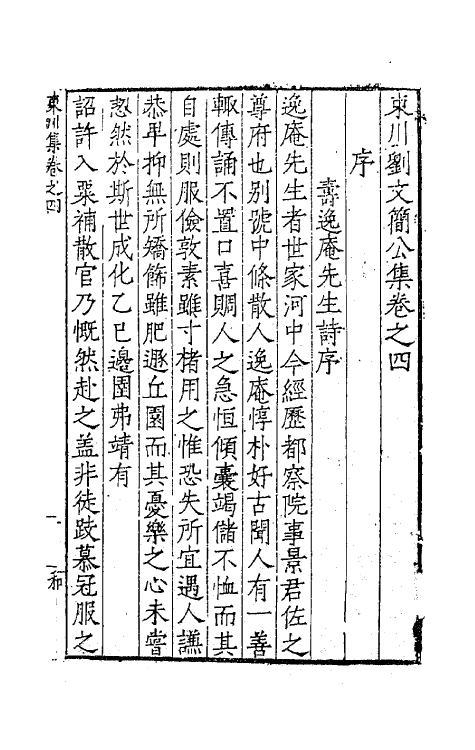 東川劉文簡公集卷之四
序
壽逸庵先生詩序
逸庵先生者世家河中今經歷都察院事景君佐之
尊府也别號中條散人逸庵惇朴好古聞人有一善
輙傳誦不置口喜賙人之急恒傾囊竭儲不恤而其
自處則服儉敦素雖寸楮用之惟恐失所宜遇人謙
恭卑抑無所矯飾雖肥遯丘園而其憂樂之心未嘗
恝然於斯世成化乙巳邊圉弗靖有
詔許入粟補散官乃慨然赴之盖非徒跂慕冠服之
東川集卷之四
一